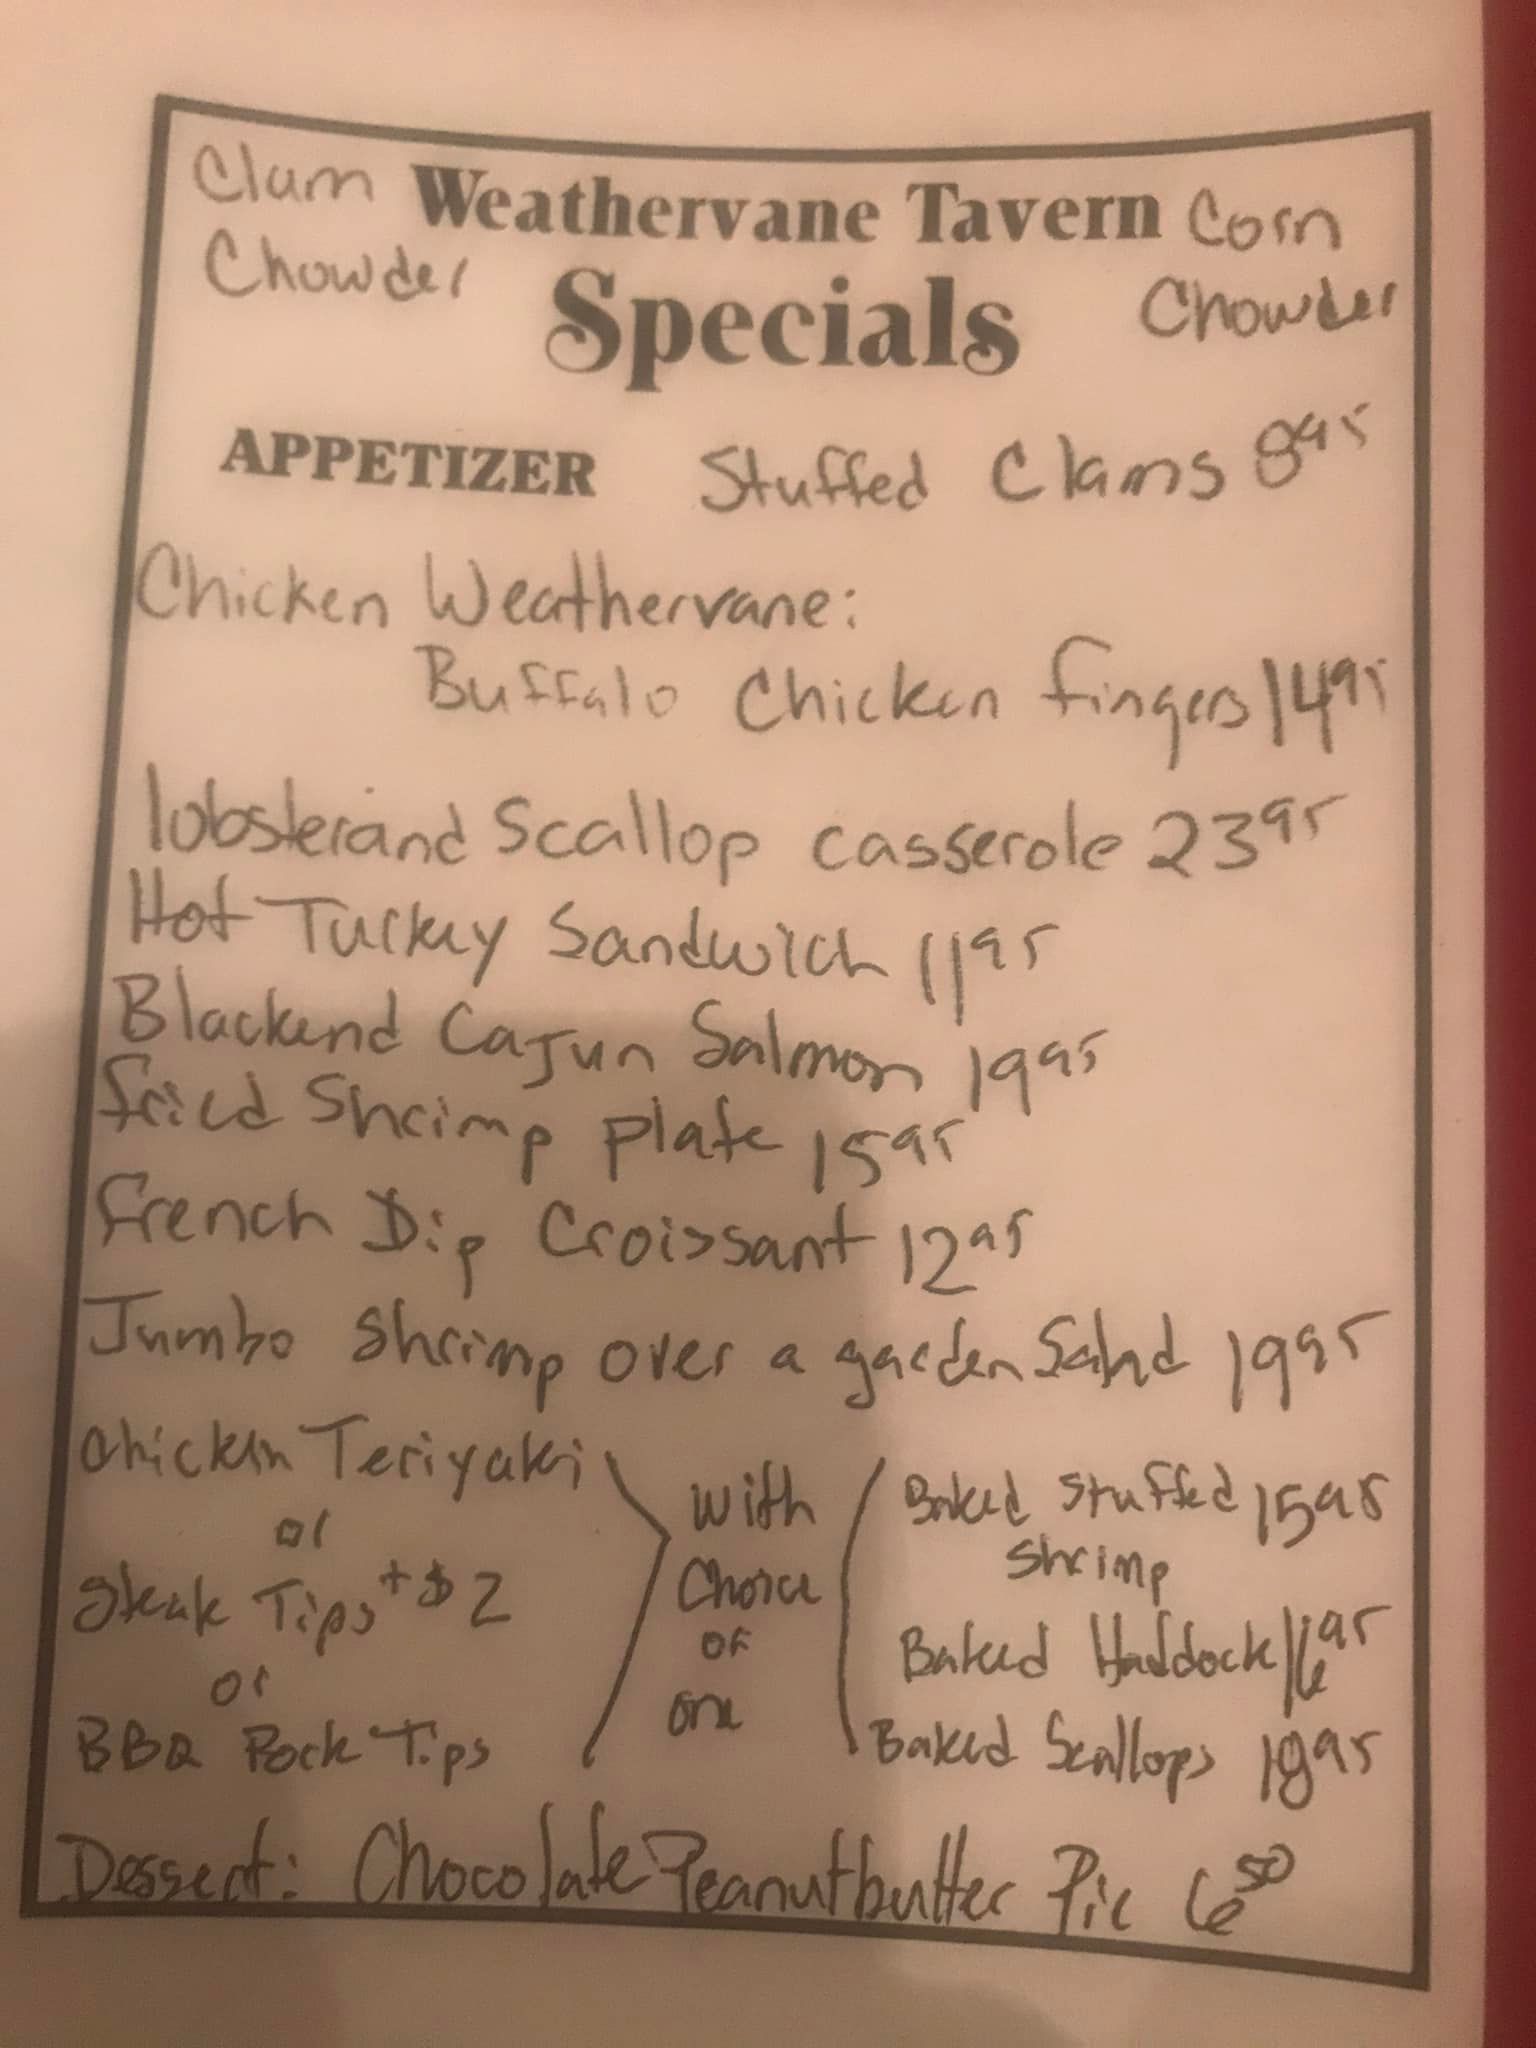 Clam Weathervane Tavern Corn
Chowder Specials Chowder
APPETIZER Stuffed Clams 8 95
Chicken Weathervane:
Buffalo Chicken fingers 14 95
lobster and Scallop casserole 23 95
Hot Turkey Sandwich 11 95
Blackend Cajun Salmon 19 95
fried Shrimp plate 15 95
French Dip Croissant 12 95
Jumbo Shrimp over a garden Salad 19 95
Chicken Teriyaki
or
Steak Tips +$2
or
BBQ Pork Tips
with
Choice
OF
one
Baked Stuffed 15 95
Shrimp
Baked Haddock 16 95
Baked Scallops 18 95
Dessert: Chocolate Peanutbutter Pie 6 50